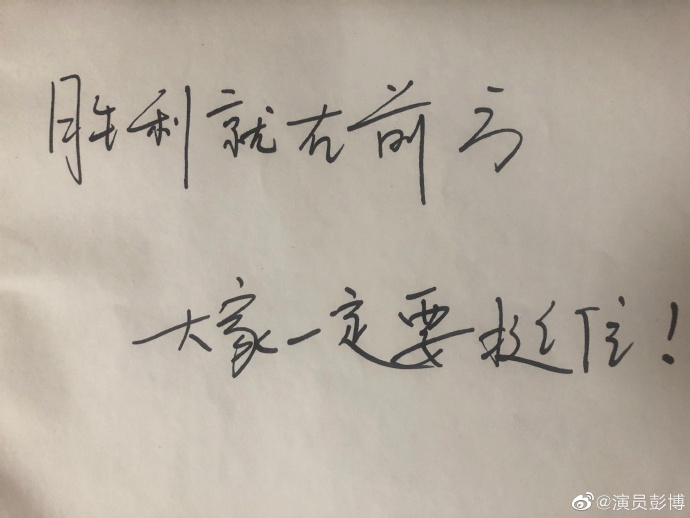 胜利就在前方
大家一定要挺住！
@演员彭博